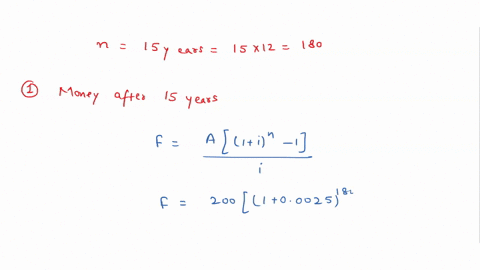 n = 15 years = 15 x 12 = 180
① Money after 15 years
F = A[(1+i)^n - 1]
i
F = 200[(1+0.0025)^182